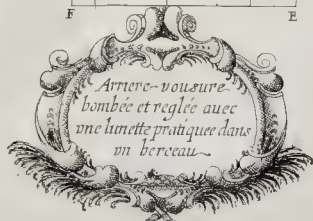 F E
Arriere-vousure
bombée et reglée auec
vne lunette pratiquee dans
vn berceau